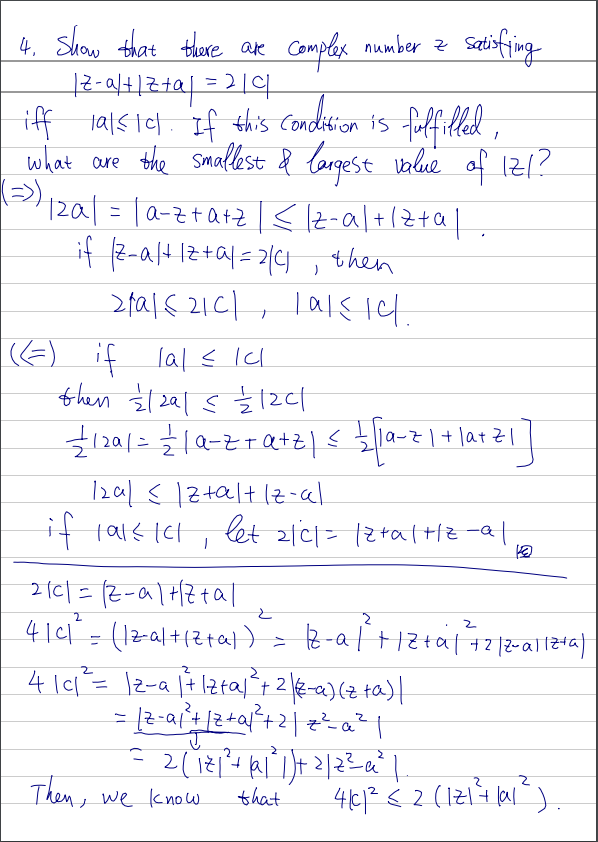 4. Show that there are complex number z satisfing
|z-a|+|z+a| = 2|c|
iff |a|≤|c|. If this condition is fulfilled,
what are the smallest & largest value of |z|?
(⇒)
|2a| = |a-z+a+z| ≤ |z-a|+|z+a|.
if |z-a|+|z+a|=2|c|, then
2|a|≤2|c|, |a|≤|c|.
(⇐) if |a| ≤ |c|
then ½|2a| ≤ ½|2c|
½|2a| = ½|a-z+a+z| ≤ ½[|a-z|+|a+z|]
|2a| ≤ |z+a|+|z-a|
if |a|≤|c|, let 2|c| = |z+a|+|z-a|
2|c| = |z-a|+|z+a|
4|c|² = (|z-a|+|z+a|)² = |z-a|²+|z+a|²+2|z-a||z+a|
4|c|² = |z-a|²+|z+a|²+2|(z-a)(z+a)|
= |z-a|²+|z+a|²+2|z²-a²|
= 2(|z|²+|a|²|)+2|z²-a²|.
Then, we know that 4|c|² ≤ 2(|z|²+|a|²).